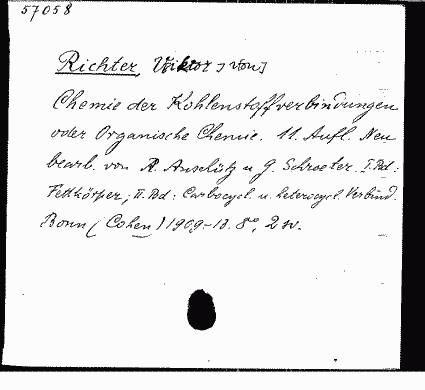 57058
Richter, Viktor [von]
Chemie der Kohlenstoffverbindungen
oder Organische Chemie. 11. Aufl. Neu
bearb. von R. Anschütz u G. Schroeter. I. Bd:
Fettkörper; II. Bd: Carbocycl. u. heterocycl. Verbind.
Bonn (Cohen) 1909-13. 8°, 2 sv.